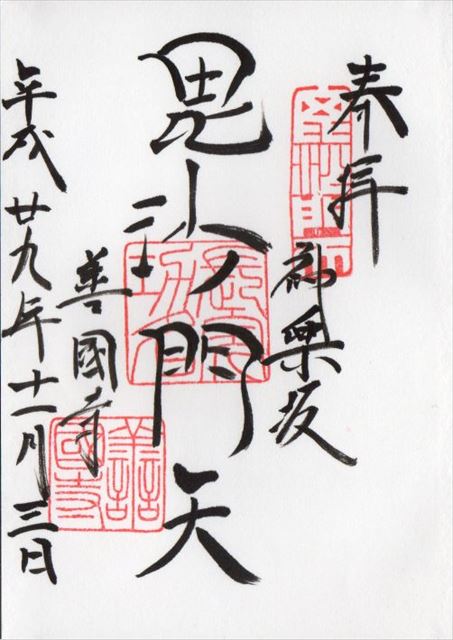 奉拝
神楽坂
毘沙門天
善國寺
平成廿九年十一月三日
善國寺